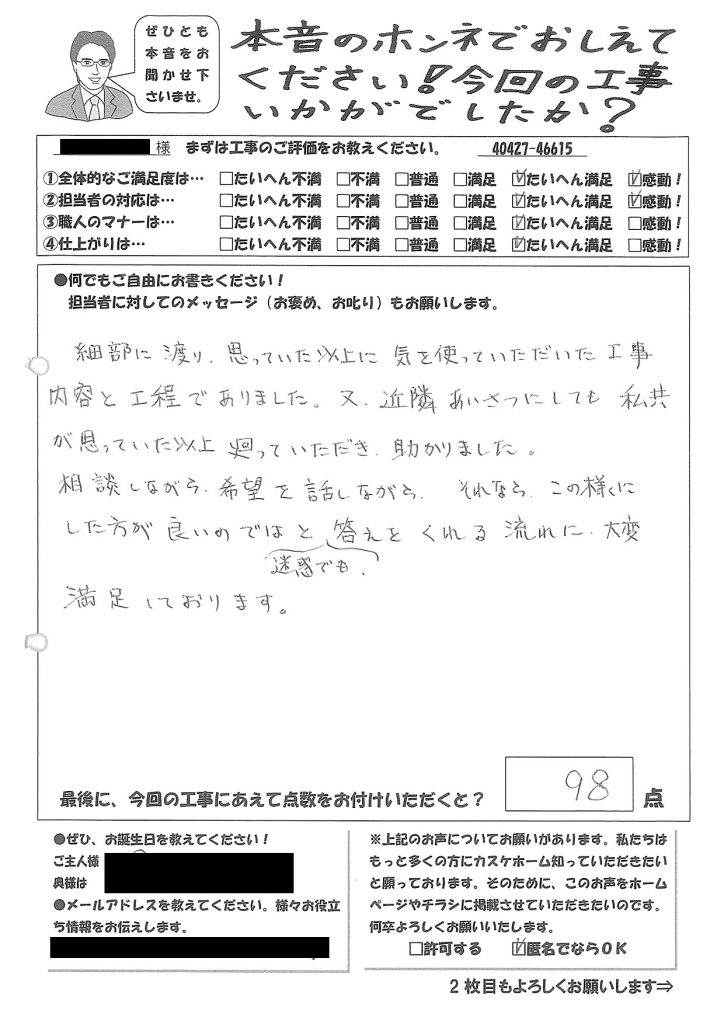 ぜひとも
本音をお
聞かせ下
さいませ。
本音のホンネでおしえて
ください!今回の工事
いかがでしたか?
様 まずは工事のご評価をお教えください。 40427-46615
①全体的なご満足度は… □たいへん不満 □不満 □普通 □満足 ☑たいへん満足 ☑感動!
②担当者の対応は… □たいへん不満 □不満 □普通 □満足 ☑たいへん満足 ☑感動!
③職人のマナーは… □たいへん不満 □不満 □普通 □満足 ☑たいへん満足 □感動!
④仕上がりは… □たいへん不満 □不満 □普通 □満足 ☑たいへん満足 □感動!
●何でもご自由にお書きください!
担当者に対してのメッセージ(お褒め、お叱り)もお願いします。
細部に渡り、思っていた以上に気を使っていただいた工事
内容と工程でありました。又、近隣あいさつにしても私共
が思っていた以上廻っていただき、助かりました。
相談しながら、希望を話しながら、それなら、この様くに
した方が良いのではと答えをくれる流れに、大変
迷惑でも、
満足しております。
最後に、今回の工事にあえて点数をお付けいただくと? 98 点
●ぜひ、お誕生日を教えてください!
ご主人様
奥様は
●メールアドレスを教えてください。様々お役立
ち情報をお伝えします。
※上記のお声についてお願いがあります。私たちは
もっと多くの方にカスケホーム知っていただきたい
と願っております。そのために、このお声をホーム
ページやチラシに掲載させていただきたいのです。
何卒よろしくお願いいたします。
□許可する ☑匿名でならOK
2枚目もよろしくお願いします⇒